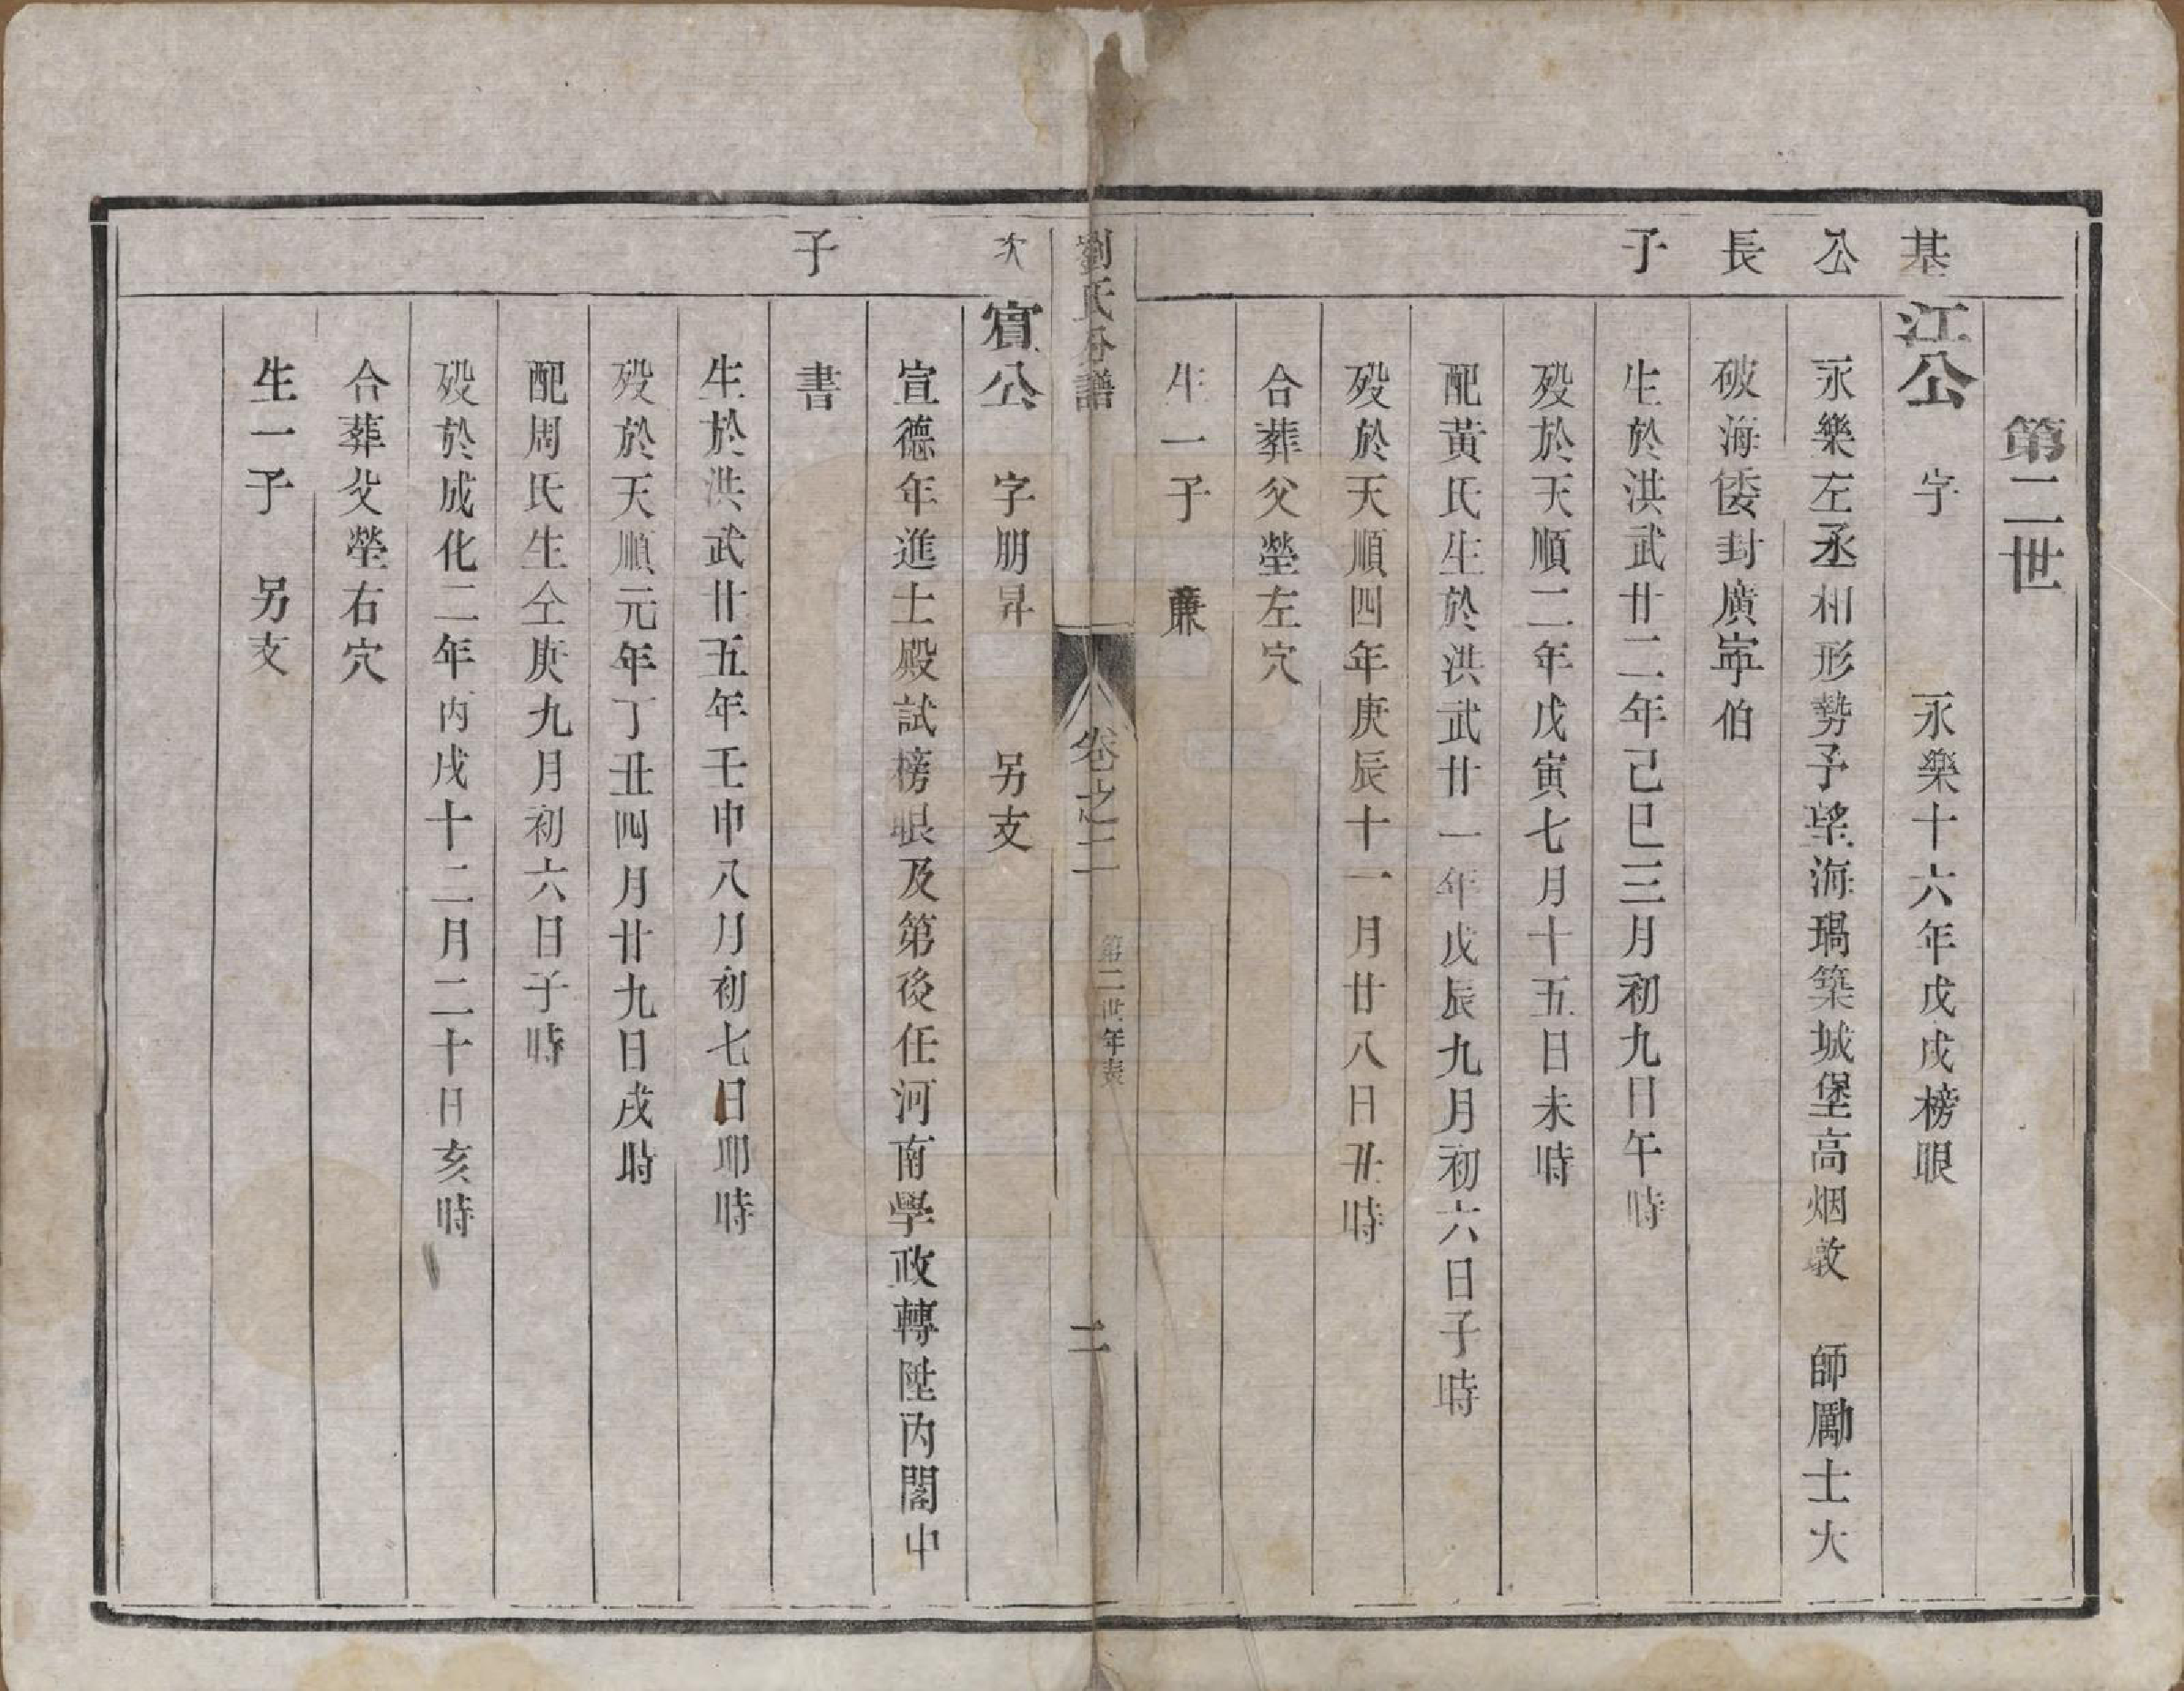 第二世
基公長子
江公　字　永樂十六年戊戌榜眼
永樂左丞相形勢予望海堝築城堡高烟墩　師勵士大
破海倭封廣寧伯
生於洪武廿二年己巳三月初九日午時
歿於天順二年戊寅七月十五日未時
配黃氏生於洪武廿一年戊辰九月初六日子時
歿於天順四年庚辰十一月廿八日丑時
合葬父塋左穴
生一子　薕
劉氏分譜　卷之二　第二世年表　二
次子
實公　字朋昇　另支
宣德年進士殿試榜眼及第後任河南學政轉陞內閣中
書
生於洪武廿五年壬申八月初七日卯時
歿於天順元年丁丑四月廿九日戌時
配周氏生仝庚九月初六日子時
歿於成化二年丙戌十二月二十日亥時
合葬父塋右穴
生一子　另支